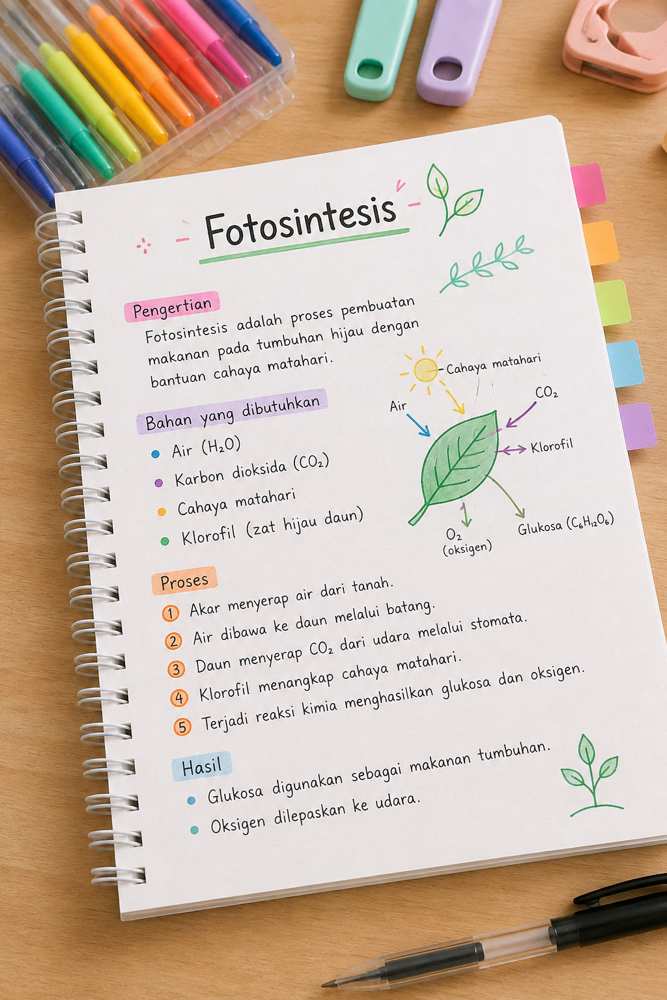 Fotosintesis
Pengertian
Fotosintesis adalah proses pembuatan
makanan pada tumbuhan hijau dengan
bantuan cahaya matahari.
Bahan yang dibutuhkan
Air (H₂O)
Karbon dioksida (CO₂)
Cahaya matahari
Klorofil (zat hijau daun)
Cahaya matahari
Air
CO₂
Klorofil
O₂
(oksigen)
Glukosa (C₆H₁₂O₆)
Proses
1 Akar menyerap air dari tanah.
2 Air dibawa ke daun melalui batang.
3 Daun menyerap CO₂ dari udara melalui stomata.
4 Klorofil menangkap cahaya matahari.
5 Terjadi reaksi kimia menghasilkan glukosa dan oksigen.
Hasil
Glukosa digunakan sebagai makanan tumbuhan.
Oksigen dilepaskan ke udara.